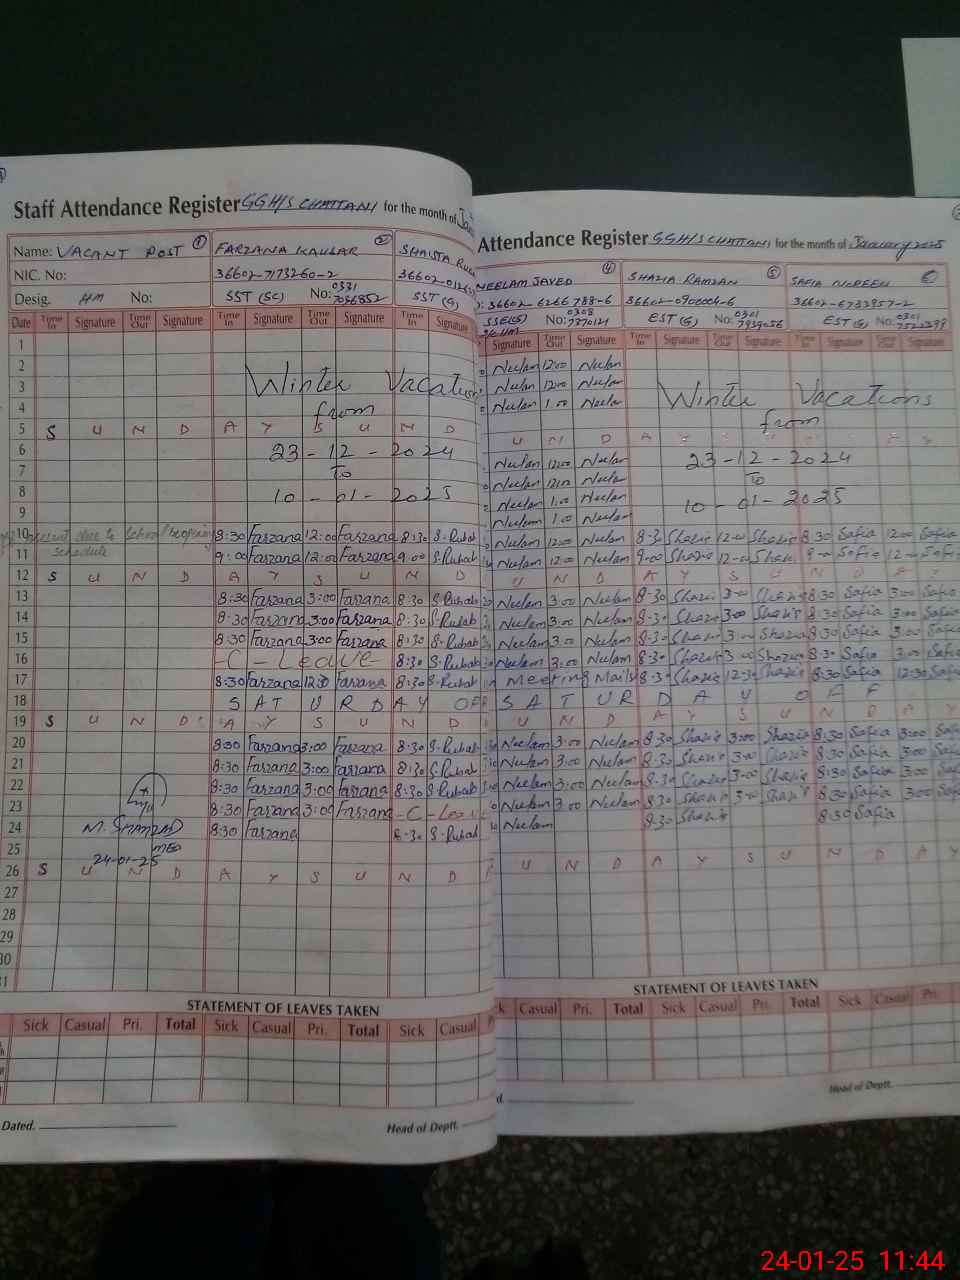 Staff Attendance Register GGH/S CHATTANI for the month of
Name: VACANT POST 1 FARZANA KAUSAR 2 SHAISTA
NIC. No: 36602-7173260-2
Desig. HM No: SST (SC) No: 0331 7036852 SST (G)
Date Time In Signature Time Out Signature Time In Signature Time Out Signature Time In Signature
1
2
3 Winter Vacation
4 from
5 S U N D A Y S U N D
6 23-12-2024
7 To
8 10-01-2025
9
10 present due to school reopening 8:30 Farzana 12:00 Farzana 8:30 S-Rubab
schedule
11 9:00 Farzana 12:00 Farzana 9:00 S-Rubab
12 S U N D A Y S U N D
13 8:30 Farzana 3:00 Farzana 8:30 S-Rubab
14 8:30 Farzana 3:00 Farzana 8:30 S-Rubab
15 8:30 Farzana 3:00 Farzana 8:30 S-Rubab
16 -C-Leave- 8:30 S-Rubab
17 8:30 Farzana 12:30 Farzana 8:30 S-Rubab
18 S A T U R D A Y OFF
19 S U N D A Y S U N D
20 8:30 Farzana 3:00 Farzana 8:30 S-Rubab
21 8:30 Farzana 3:00 Farzana 8:30 S-Rubab
22 8:30 Farzana 3:00 Farzana 8:30 S-Rubab
23 8:30 Farzana 3:00 Farzana -C-Lea
24 M. SHAHZAD 8:30 Farzana 8:30 S-Rubab
25 MEO
24-01-25
26 S U N D A Y S U N D
27
28
29
30
31
STATEMENT OF LEAVES TAKEN
Sick Casual Pri. Total Sick Casual Pri. Total Sick Casual
Dated. Head of Deptt.
Attendance Register GGH/S CHATTANI for the month of January 2025
NEELAM JAVED 4 SHAZIA RAMZAN 5 SAFIA NOREEN 6
36602-6266788-6 36602-0906004-6 36602-6783957-2
SSE(S) No: 0308 7770121 EST (G) No: 0301 7939056 EST (G) No: 0301
Signature Time Out Signature Time In Signature Time Out Signature Time In Signature Time Out Signature
Neelam 12:00 Neelam
Neelam 12:00 Neelam Winter Vacations
Neelam 1:00 Neelam from
U N D A Y
Neelam 12:00 Neelam 23-12-2024
Neelam 12:00 Neelam To
Neelam 1:00 Neelam 10-01-2025
Neelam 1:00 Neelam
Neelam 12:00 Neelam 8:30 Shazia 12:00 Shazia 8:30 Safia 12:00 Safia
Neelam 12:00 Neelam 9:00 Shazia 12:00 Shazia 9:00 Safia 12:00 Safia
U N D A Y S U N D A Y
Neelam 3:00 Neelam 8:30 Shazia 3:00 Shazia 8:30 Safia 3:00 Safia
Neelam 3:00 Neelam 8:30 Shazia 3:00 Shazia 8:30 Safia 3:00 Safia
Neelam 3:00 Neelam 8:30 Shazia 3:00 Shazia 8:30 Safia 3:00 Safia
Neelam 3:00 Neelam 8:30 Shazia 3:00 Shazia 8:30 Safia 3:00 Safia
Meeting Mailsi 8:30 Shazia 12:30 Shazia 8:30 Safia 12:30 Safia
S A T U R D A Y O F F
U N D A Y S U N D A Y
Neelam 3:00 Neelam 8:30 Shazia 3:00 Shazia 8:30 Safia 3:00 Safia
Neelam 3:00 Neelam 8:30 Shazia 3:00 Shazia 8:30 Safia 3:00 Safia
Neelam 3:00 Neelam 8:30 Shazia 3:00 Shazia 8:30 Safia 3:00 Safia
Neelam 3:00 Neelam 8:30 Shazia 3:00 Shazia 8:30 Safia 3:00 Safia
Neelam 8:30 Shazia 8:30 Safia
U N D A Y S U N D A Y
STATEMENT OF LEAVES TAKEN
Casual Pri. Total Sick Casual Pri. Total Sick Casual Pri.
Head of Deptt.
24-01-25 11:44